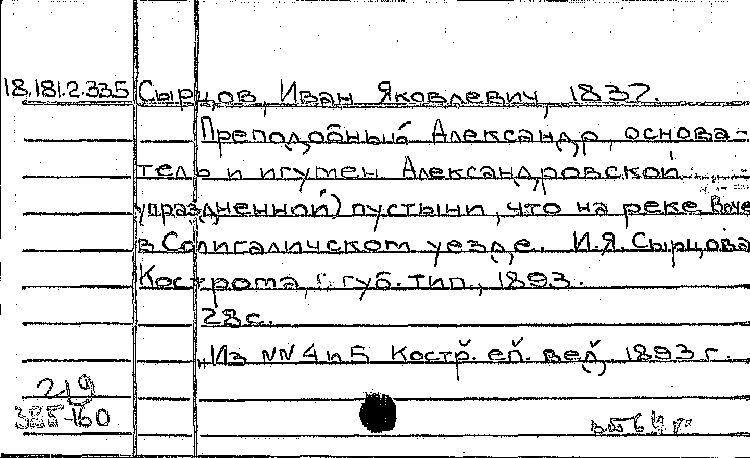 18.181.2.335 Сырцов, Иван Яковлевич, 1837.
Преподобный Александр, основа-
тель и игумен Александровской
упраздненной) пустыни, что на реке Воче
в Солигаличском уезде. И.Я. Сырцова
Кострома, г. губ. тип., 1893.
28 с.
„Из NN 4 и 5 Костр. еп. вед. 1893 г.
219
385-160